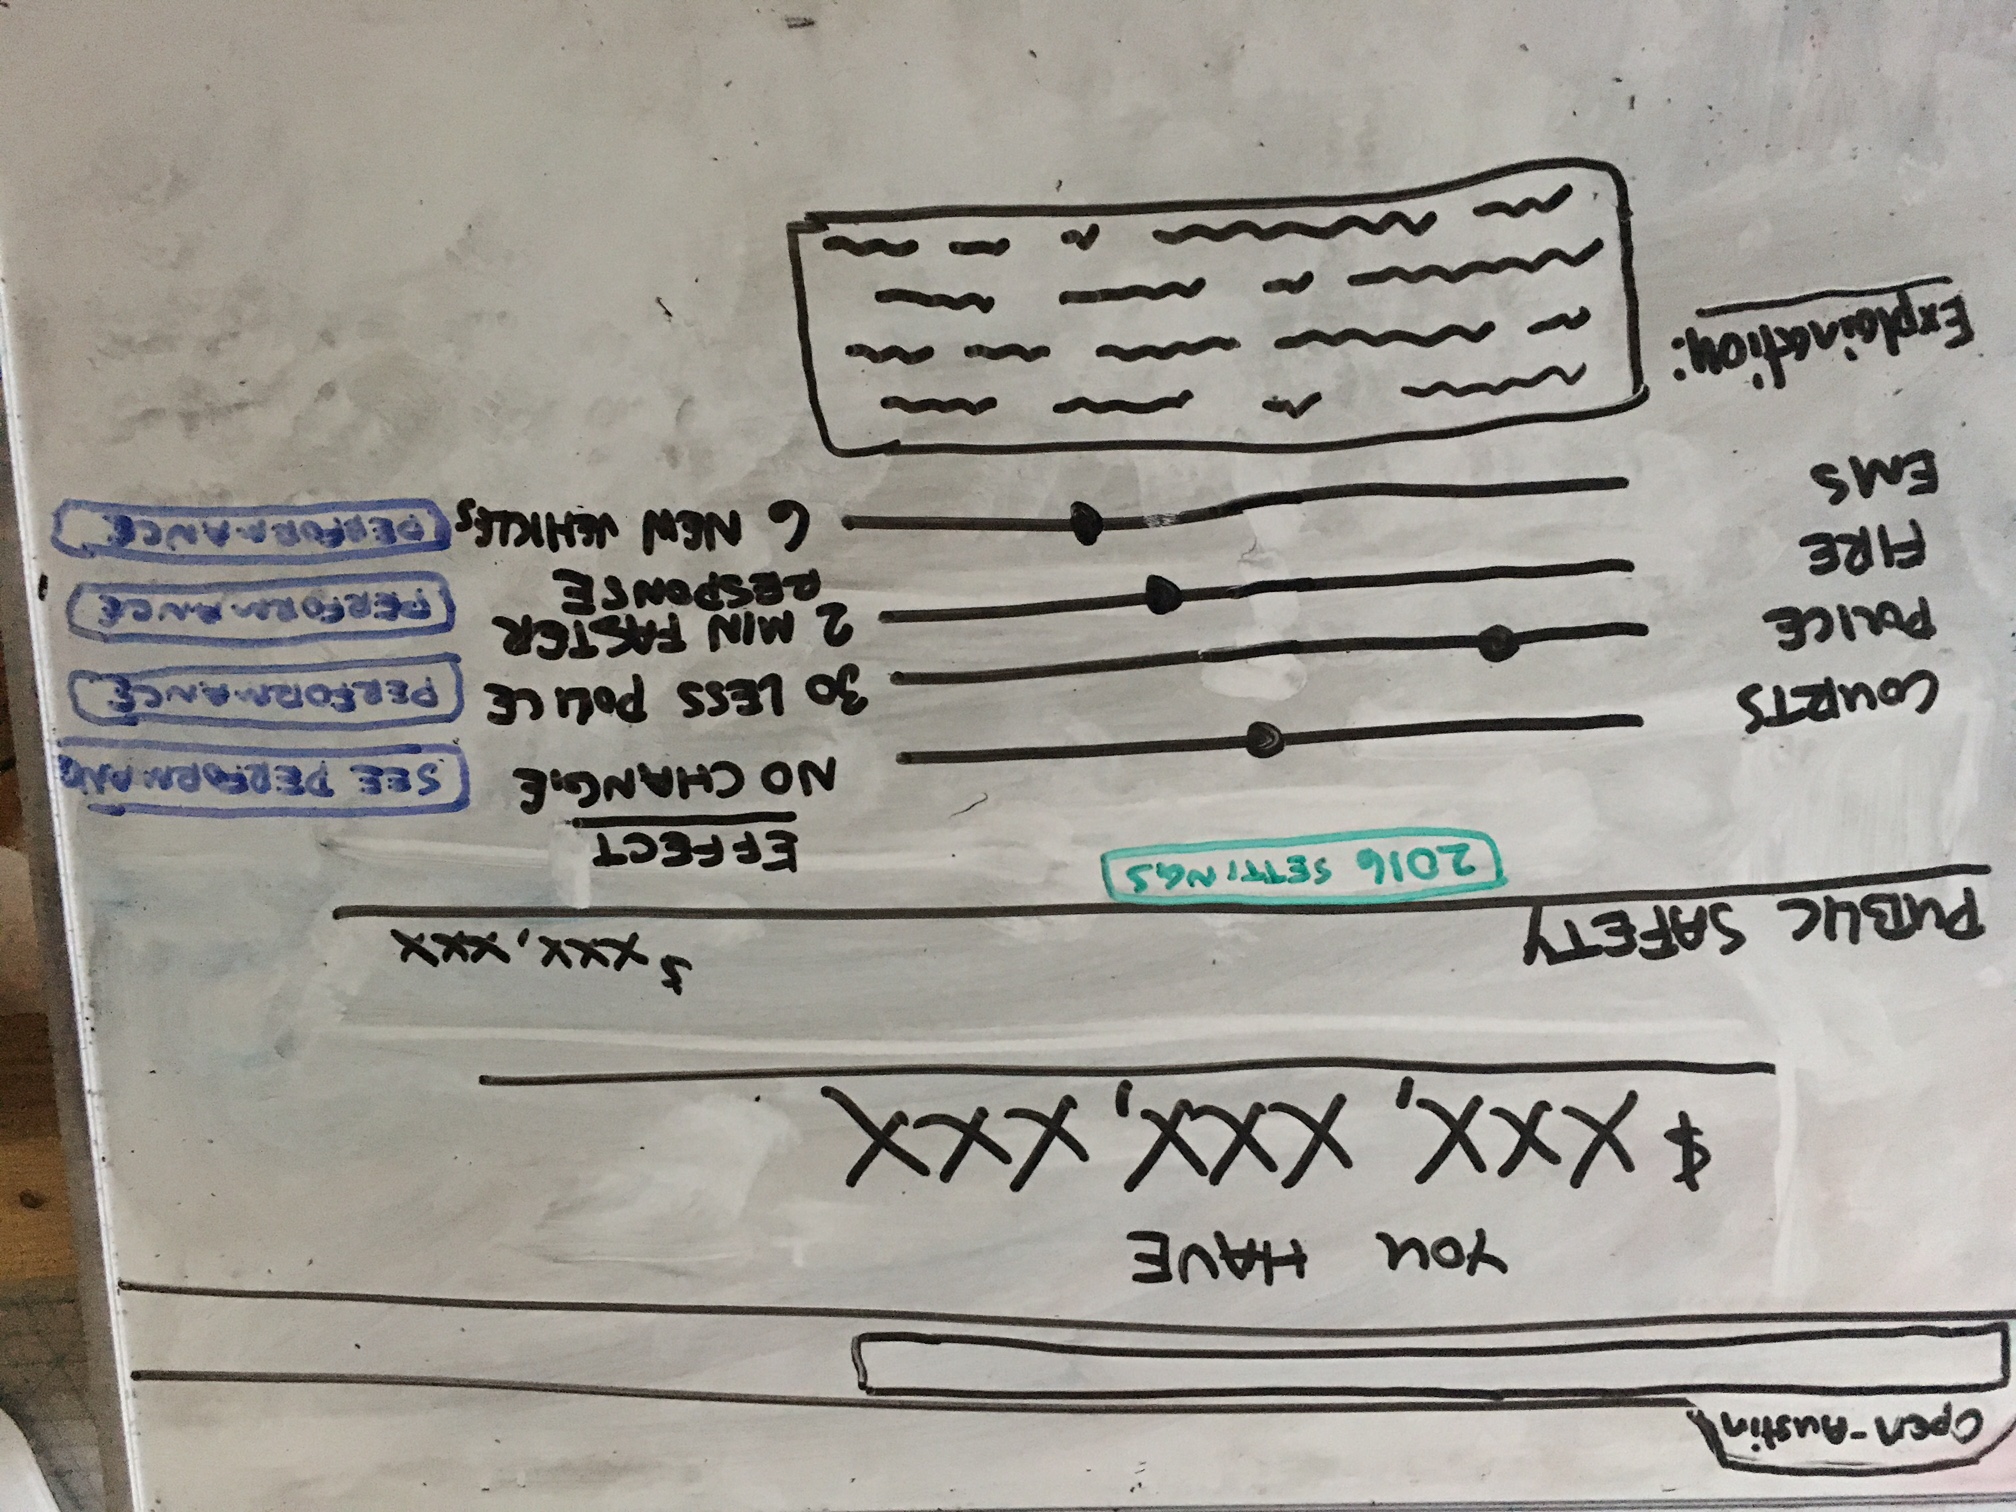 Open-Austin
YOU HAVE
$ XXX, XXX, XXX
PUBLIC SAFETY $ XXX, XXX
2016 SETTINGS
EFFECT
COURTS NO CHANGE SEE PERFORMANC
POLICE 30 LESS POLICE PERFORMANCE
FIRE 2 MIN FASTER RESPONSE PERFORMANCE
EMS 6 NEW VEHICLES PERFORMANCE
Explaination: